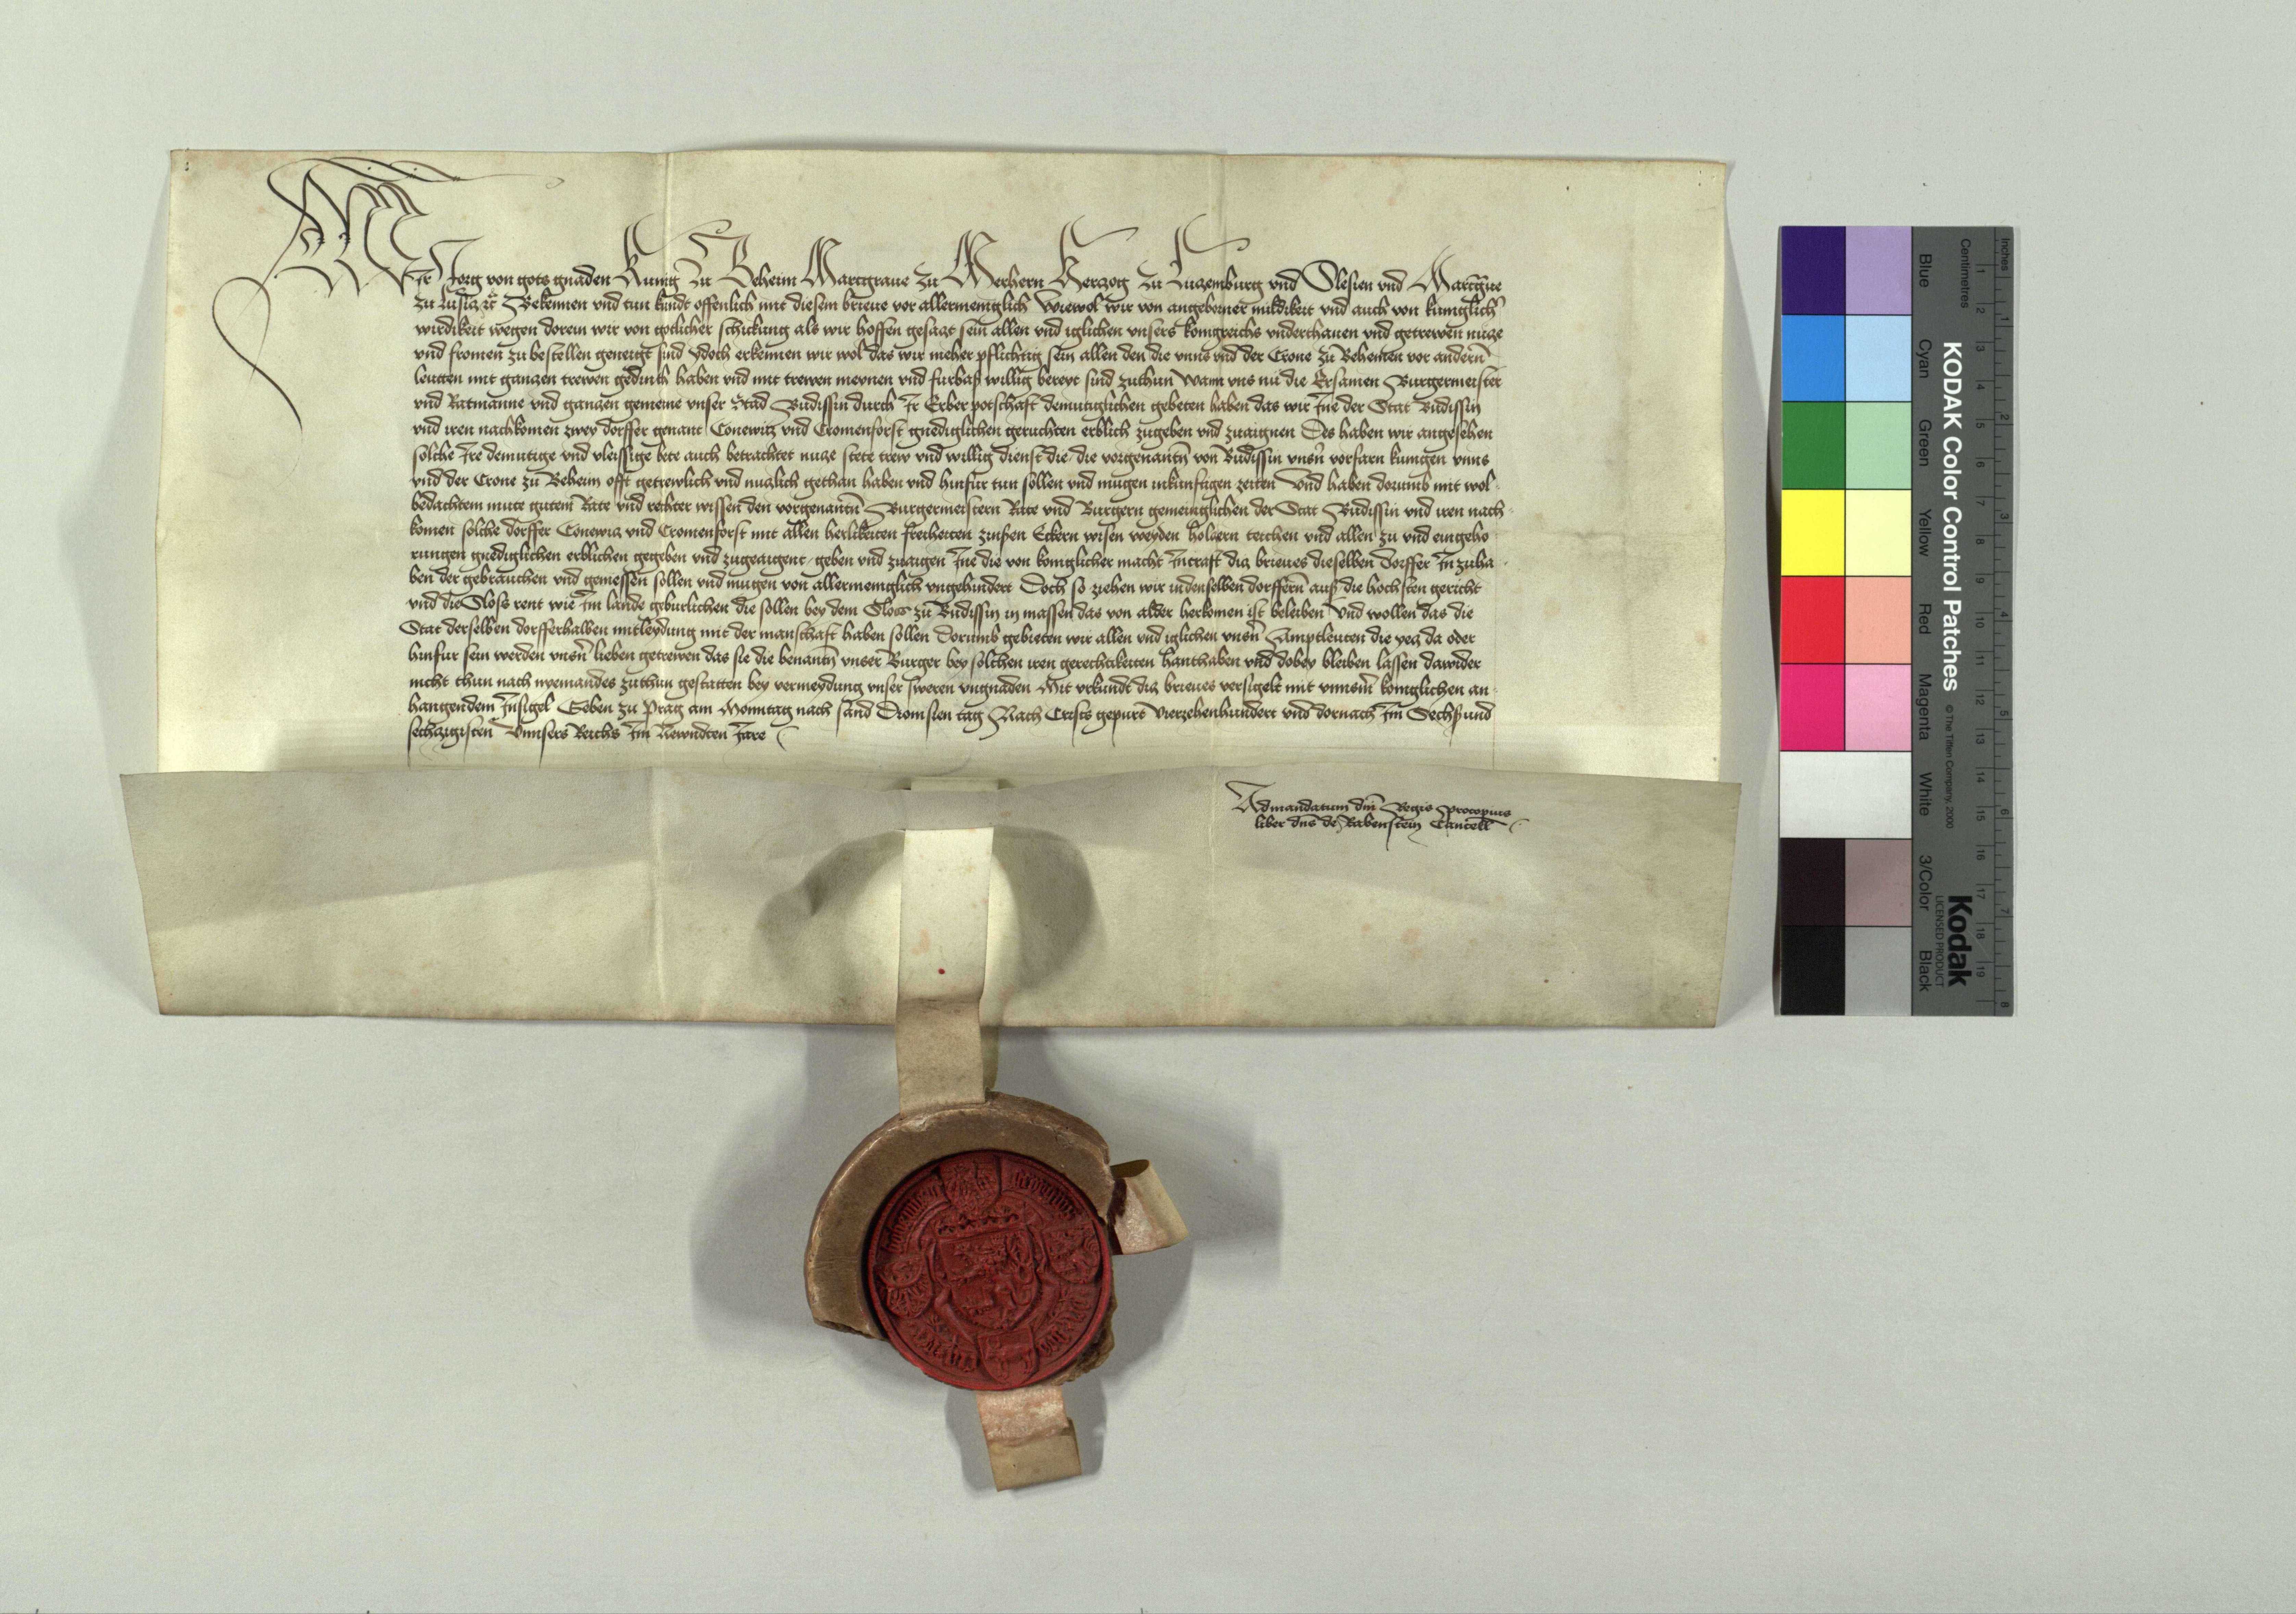 Wir Jorg von gots gnaden Kunig zu Beheim Marcgraue zu Merhern Herzog zu Luczemburg vnd Slesien vnd Marcgue
zu Lusicz ꝛc Bekennen vnd tun kundt offenlich mit diesem brieue vor allermeniglich Wiewol wir von angeborner mildikeit vnd auch von kuniglich
wirdikeit wegen dorein wir von gotlicher schickung als wir hoffen gesaczt sein allen vnd iglichen vnsers konigreichs vnderthanen vnd getrewen nucze
vnd fromen zu bestellen geneigt sind ydoch erkennen wir wol das wir meher pflichtig sein allen den die vnns vnd der Crone zu Behemen vor andern
leutten mit ganczen trewen gedinth haben vnd mit trewen meynen vnd furbaß willig bereyt sind zuthun Wann vns nu die Ersamen Burgermeister
vnd Ratmanne vnd ganczen gemeine vnser Stad Budissin durch Ir Erber potschaft demutiglichen gebeten haben das wir Ine der Stat Budissin
vnd iren nachkomen zwey dorffer genant Conewitz vnd Cromenforst gnediglichen geruchten erblich zugeben vnd zuaignen Des haben wir angesehen
solche Ire demutige vnd vleissige bete auch betrachtet nucze stete trew vnd willig dienst die die vorgenantn von Budissin vnsn vorfarn kunigen vnns
vnd der Crone zu Beheim offt getrewlich vnd nuczlich gethan haben vnd hinfur tun sollen vnd mugen inkunftigen zeiten Vnd haben dorumb mit wol
bedachtem mute gutem Rate vnd rechter wissen den vorgenantn Burgermeistern Rate vnd Burgern gemeiniglichen der Stat Budissin vnd iren nach
komen solche dorffer Conewicz vnd Cromenforst mit allen herlikeiten freiheiten zinßen Eckern wisen weyden holczern teichen vnd allen zu vnd eingeho
rungen gnediglichen erblichen gegeben vnd zugeaigent geben vnd zuaigen Ine die von koniglicher macht Incraft dicz brieues dieselben dorffer In zuha
ben der gebrauchen vnd geniessen sollen vnd mugen von allermeniglich vngehindert Doch so ziehen wir indenselben dorffern auß die hochsten gericht
vnd die Sloss rent wie Im lande geburlichen die sollen bey dem Sloss zu Budissin in massen das von alder herkomen ist beleiben Vnd wollen das die
Stat derselben dorfferhalben mitleydung mit der manschaft haben sollen Dorumb gebieten wir allen vnd iglichen vnsn Amptleuten die yecz da oder
hinfur sein werden vnsn lieben getrewen das sie die benantn vnser Burger bey solchen iren gerechtikeiten hanthaben vnd dobey bleiben lassen dawider
nicht thun nach nyemandes zuthun gestatten bey vermeydung vnser sweren vngnaden Mit vrkundt dicz brieues versigelt mit vnnsm koniglichen an
hangendem Insigel Geben zu Prag am Monntag nach sand Dionisien tag Nach Crists gepurt Vierzehenhundert vnd dornach Im Sechßund
sechczigisten Vnnsers Reichs Im Newndten Jare
Admandatum dm Regis Procopius
liber dns de Rabenstein Cancell
KODAK Color Control Patches
© The Tiffen Company, 2000
Kodak
LICENSED PRODUCT
Inches
Centimetres
Blue
Cyan
Green
Yellow
Red
Magenta
White
3/Color
Black
1 2 3 4 5 6 7 8 9 10 11 12 13 14 15 16 17 18 19
1 2 3 4 5 6 7 8